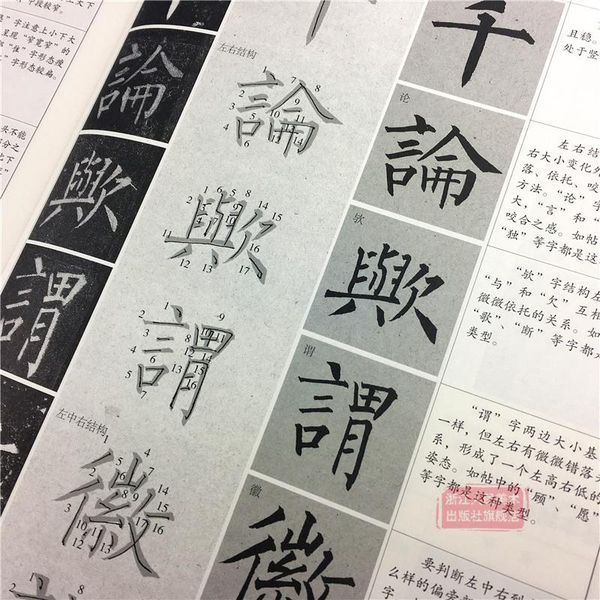 中段较窄。
是”字注意上小下大
呈现“窄宽窄”的
”字形态较扁。
头不能
論
歟
謂
左右结构
論
歟
謂
左中右结构
徽
千
论
論
欤
歟
谓
謂
徽
徽
且稳。
处于竖
左右结
右大小变化外
落、依托、咬
方法。“论”字
大，“言”和“
咬合之感。如帖
“独”等字都是这
“欤”字结构左
“与”和“欠”互相
微微依托的关系。如
“歌”、“断”等字都
类型。
“谓”字两边大小基
一样，但左右有微微错落
系，形成了一个左高右低的
姿态。如帖中的“顾”、“愿”
等字都是这种类型。
出版社旗舰店
要判断左中右到
么样的偏旁
字